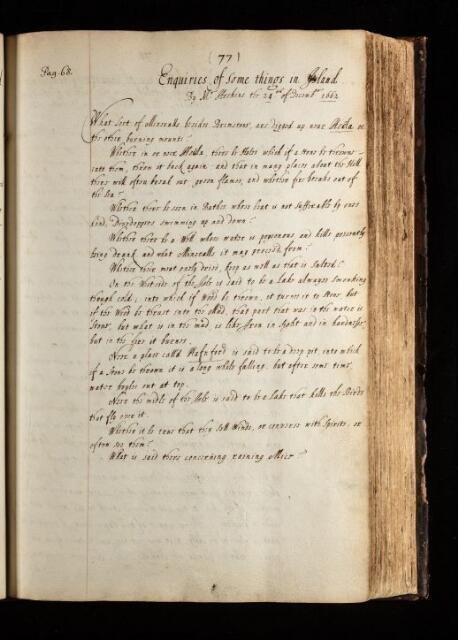 (77)
Pag. 68.
Enquiries of some things in Island.
By Mr Hoskins the 24th of Decembr 1662
What sort of Mineralls besides Brimstone, are digged up near Hecla or
the other burning mounts?
Whether in or near Hecla, there be Holes which if a stone be thrown
into them, throw it back again, and that in many places about the Hill
there will often break out green flames, and whether fire breaks out of
the Sea?
Whether there be seen in Bathes whose heat is not sufferable by ones
hand, swimming up and down?
Whether there be a Well whose water is poysonous and kills presently
being drank and what Mineralls it may proceed from?
Whether their meat only dried, keep as well as that is salted?
On the West side of the Isle is said to be a Lake always smoaking
though cold, into which if Wood be thrown, it turns it to Stone, but
if the Wood be thrust into the Mud, that part that was in the water is
Stone, but what is in the mud is like Iron in sight and in hardnesse
but in the fire it burnes.
Near a place calld Hafnford is said to be a deep pit into which
if a Stone be thrown it is a long while falling, but after some time
water boyles out at top.
Near the midle of the Isle is said to be a Lake that kills the Birds
that fly over it.
Whether it be true that they sell Winds, or converse with Spirits, or
often see them?
What is said there concerning raining Mice?